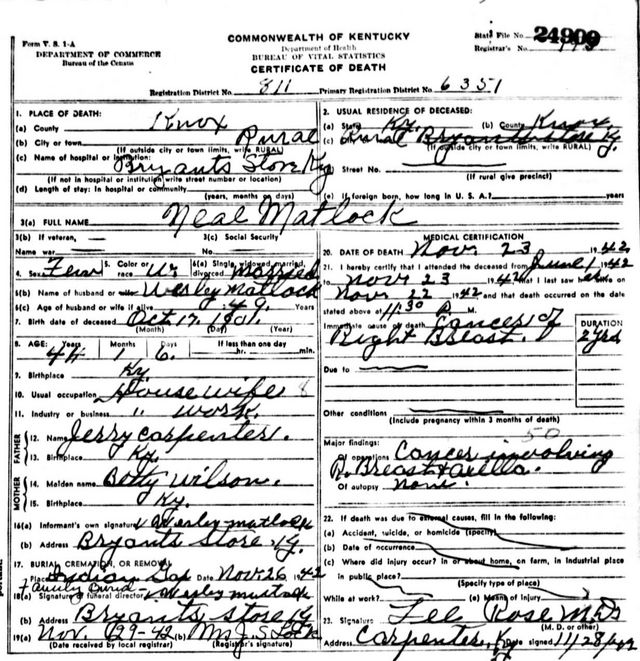 Form V. S. 1-A
DEPARTMENT OF COMMERCE
Bureau of the Census
COMMONWEALTH OF KENTUCKY
Department of Health
BUREAU OF VITAL STATISTICS
CERTIFICATE OF DEATH
State File No. 24909
Registrar's No.
Registration District No. 811 Primary Registration District No. 6351
1. PLACE OF DEATH:
(a) County Knox
(b) City or town Rural
(If outside city or town limits, write RURAL)
(c) Name of hospital or institution:
Bryants Store Ky
(If not in hospital or institution write street number or location)
(d) Length of stay: In hospital or community
(years, months or days)
2. USUAL RESIDENCE OF DECEASED:
(a) State Ky. (b) County Knox
(c) Rural Bryants Store Ky.
(If outside city or town limits, write RURAL)
Street No.
(If rural give precinct)
(e) If foreign born, how long in U. S. A.? years
3(a) FULL NAME Neal Matlock
3(b) If veteran, 3(c) Social Security
Name war No.
4. Sex Fem 5. Color or race W. 6(a) Single, widowed, married, divorced Married
6(b) Name of husband or wife Wesley Matlock
6(c) Age of husband or wife if alive 49 Years
7. Birth date of deceased Oct 17, 1901.
(Month) (Day) (Year)
8. AGE: Years Months Days If less than one day
1 6. hr. min.
9. Birthplace Ky
10. Usual occupation House wife 8
11. Industry or business " work.
FATHER
12. Name Jerry Carpenter.
13. Birthplace Ky.
MOTHER
14. Maiden name Betty Wilson.
15. Birthplace Ky.
16(a) Informant's own signature Wesley Matlock
(b) Address Bryants Store, Ky.
17. BURIAL, CREMATION, OR REMOVAL
Place Indian Gap Date Nov. 26 1942
Family
18(a) Signature of funeral director Wesley Matlock
(b) Address Bryants Store Ky
19(a) Nov. 29-42 (b) Mrs J. S. Lock
(Date received by local registrar) (Registrar's signature)
MEDICAL CERTIFICATION
20. DATE OF DEATH Nov. 23 1942
21. I hereby certify that I attended the deceased from June 1 1942
to Nov 23 1942 that I last saw alive on
Nov. 22 1942 and that death occurred on the date
stated above at 11:30 M.
Immediate cause of death Cancer of
Right Breast.
DURATION
2 yrs
Due to
Other conditions
(Include pregnancy within 3 months of death)
50
Major findings:
Of operations Cancer involving
R. Breast & axella.
Of autopsy none.
22. If death was due to external causes, fill in the following:
(a) Accident, suicide, or homicide (specify)
(b) Date of occurrence
(c) Where did injury occur? in or about home, on farm, in industrial place
in public place?
(Specify type of place)
While at work? (e) Means of injury
23. Signature Lee Rose M.D.
(M. D. or other)
Address Carpenter, Ky Date signed 11/28/42